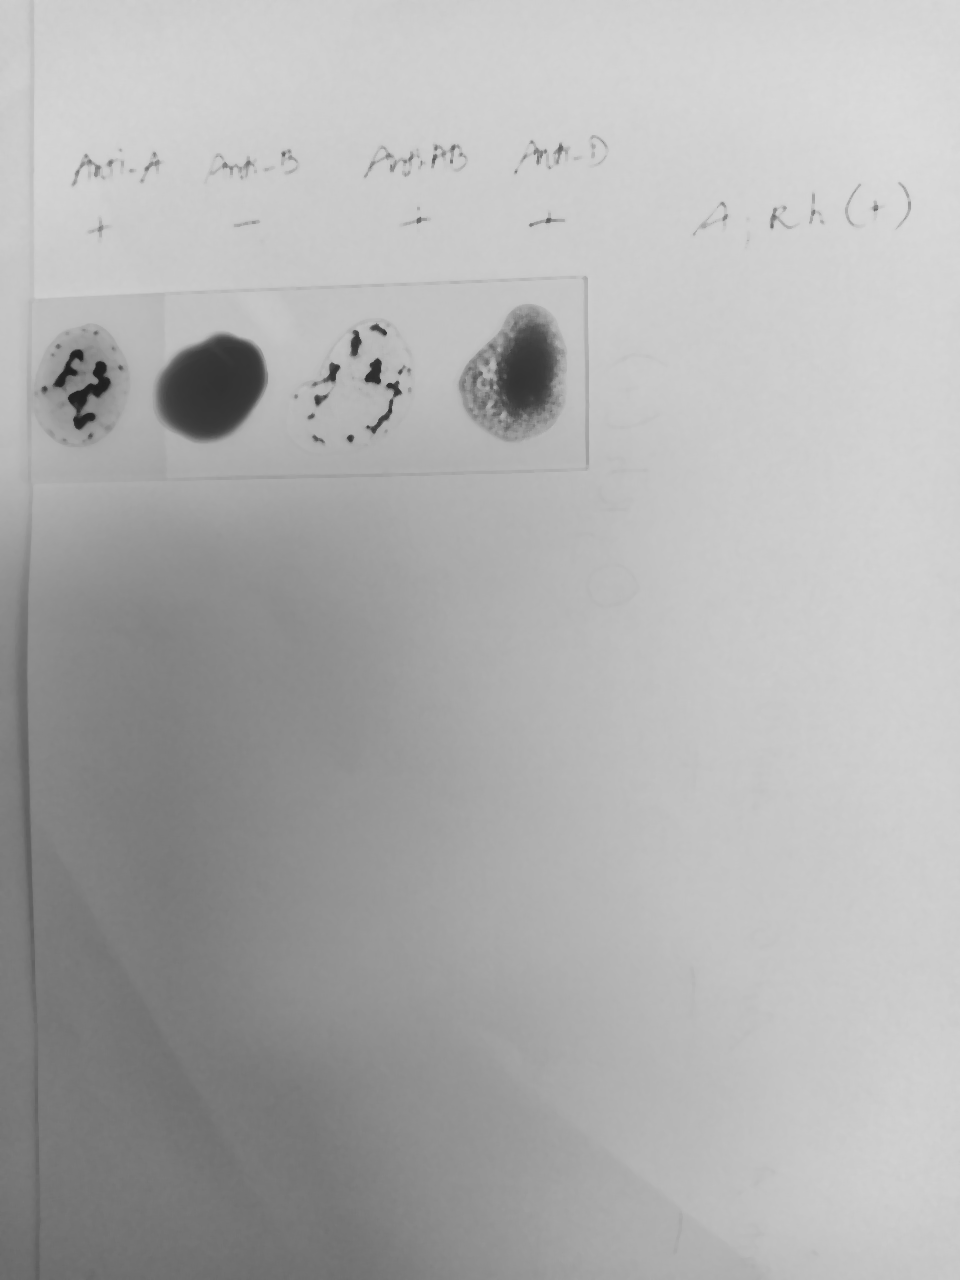 Anti-A Anti-B Anti-AB Anti-D
+ - + + A; Rh (+)